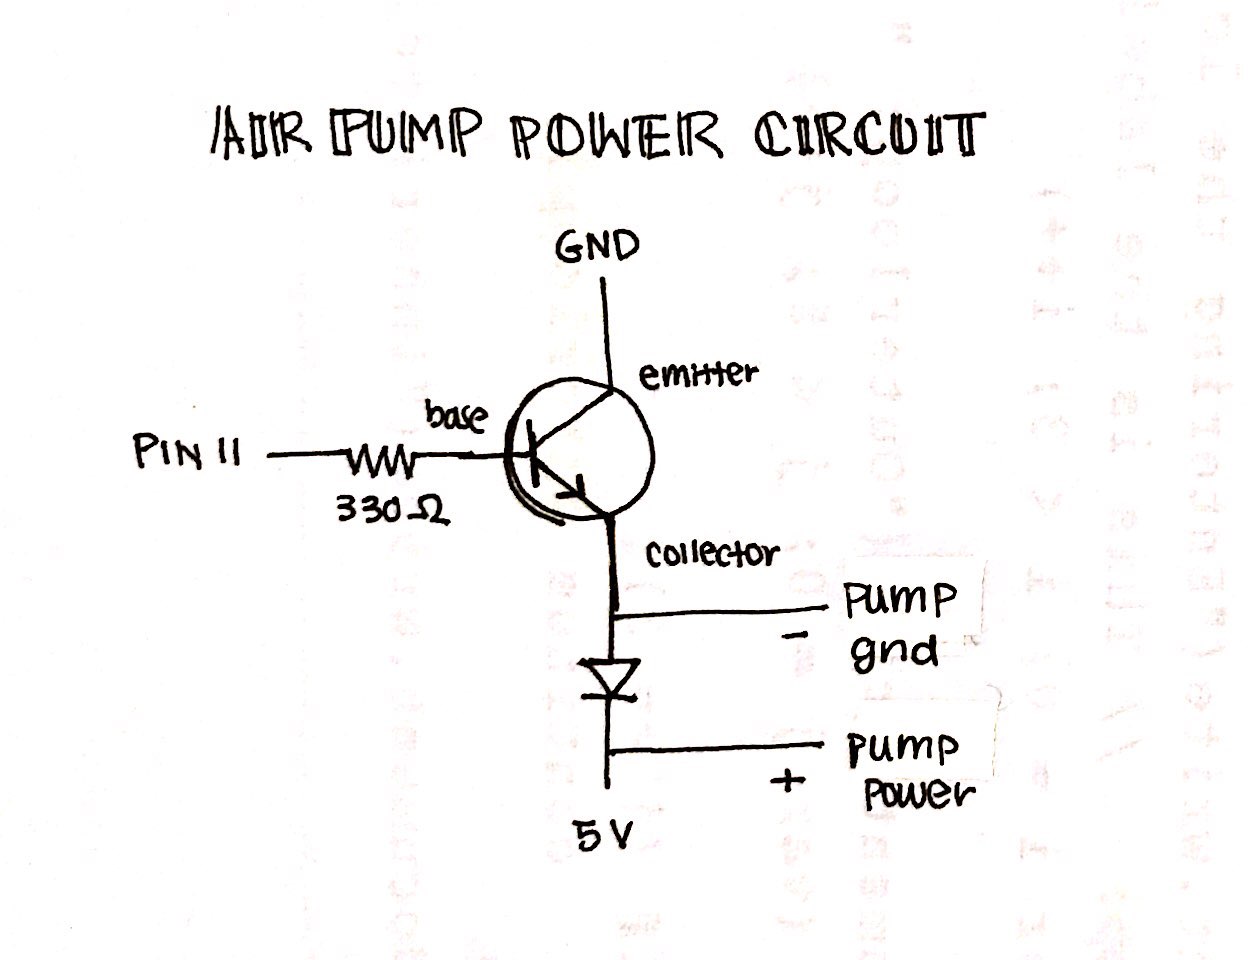 AIR PUMP POWER CIRCUIT
GND
emitter
base
PIN 11
330Ω
collector
pump
gnd
-
pump
power
+
5V